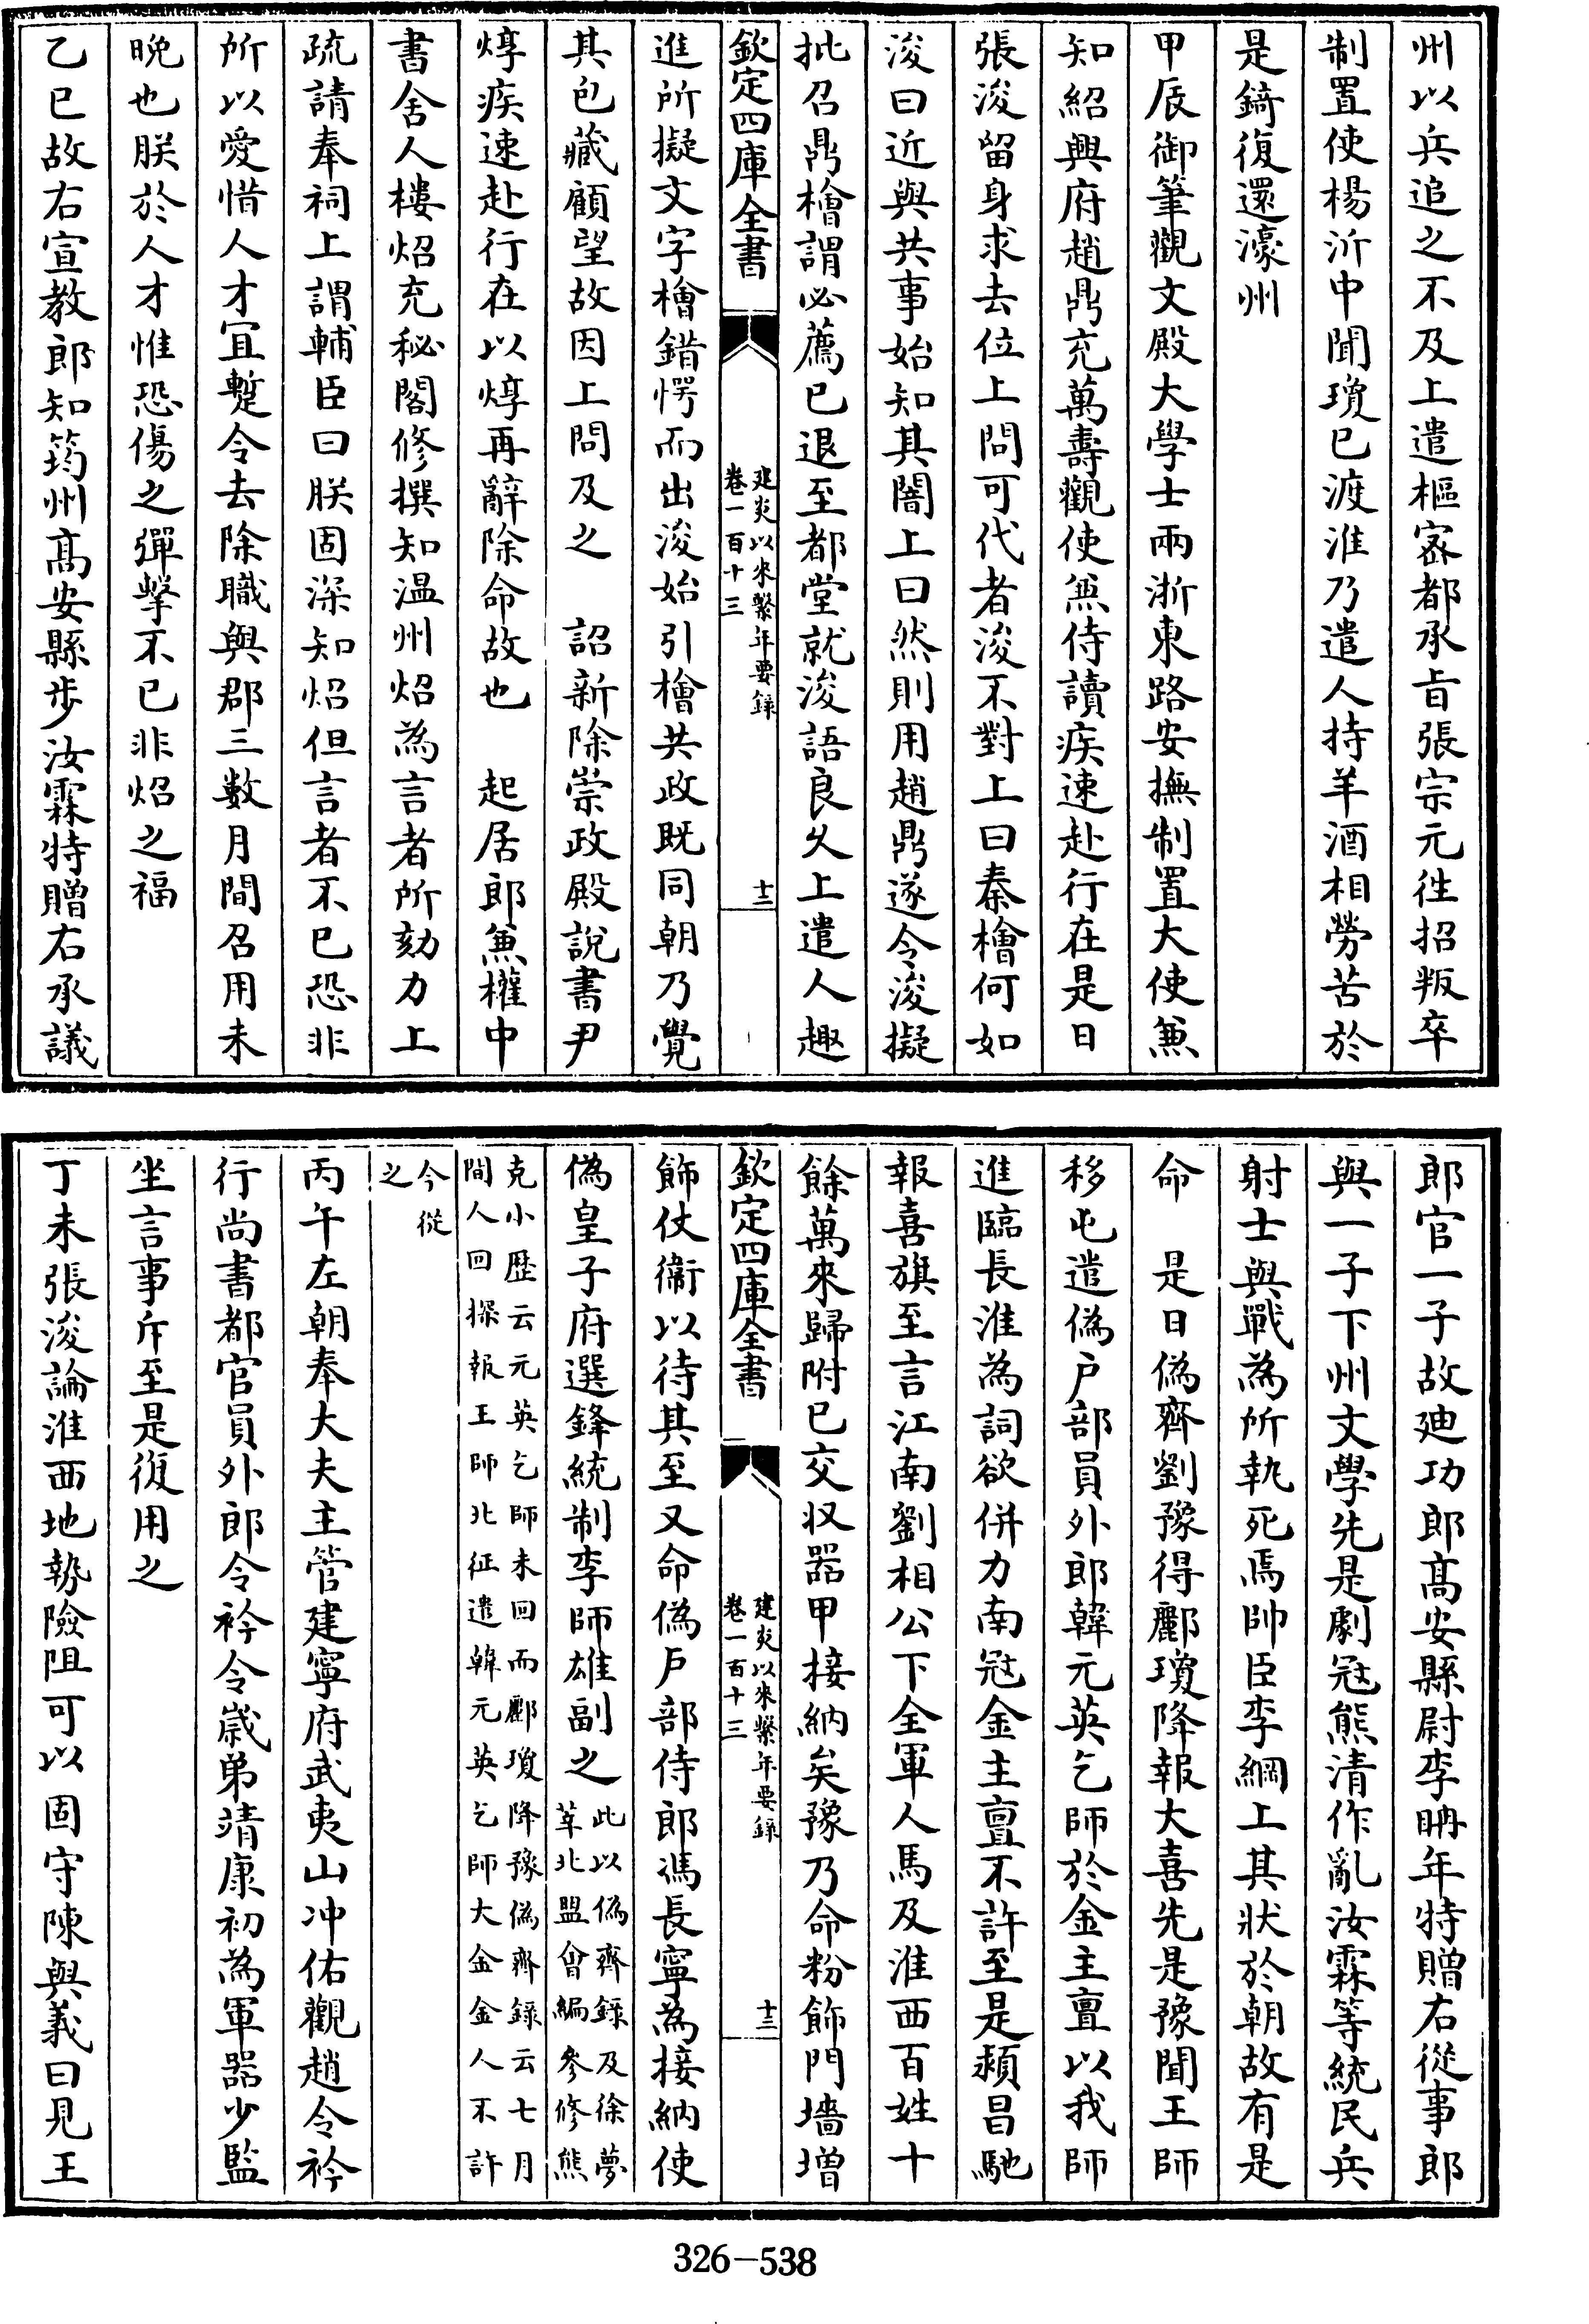 州以兵追之不及上遣樞宻都承㫖張宗元徃招叛卒
制置使楊沂中聞瓊已渡淮乃遣人持羊酒相勞苦於
是錡復還濠州
甲辰御筆觀文殿大學士兩浙東路安撫制置大使兼
知紹興府趙鼎充萬壽觀使兼侍讀疾速赴行在是日
張浚留身求去位上問可代者浚不對上曰秦檜何如
浚曰近與共事始知其闇上曰然則用趙鼎遂令浚擬
批召鼎檜謂必薦已退至都堂就浚語良久上遣人趣
欽定四庫全書
建炎以來繫年要録
卷一百十三
十二
進所擬文字檜錯愕而出浚始引檜共政既同朝乃覺
其包藏顧望故因上問及之　詔新除崇政殿說書尹
焞疾速赴行在以焞再辭除命故也　起居郎兼權中
書舍人樓炤充秘閣修撰知温州炤為言者所劾力上
疏請奉祠上謂輔臣曰朕固深知炤但言者不已恐非
所以愛惜人才宜蹔令去除職與郡三數月間召用未
晚也朕於人才惟恐傷之彈擊不已非炤之福
乙巳故右宣教郎知筠州髙安縣步汝霖特贈右承議
郎官一子故廸功郎髙安縣尉李眀年特贈右從事郎
與一子下州文學先是劇冦熊清作亂汝霖等統民兵
射士與戰為所執死焉帥臣李綱上其狀於朝故有是
命　是日偽齊劉豫得酈瓊降報大喜先是豫聞王師
移屯遣偽户部員外郎韓元英乞師於金主亶以我師
進臨長淮為詞欲併力南冦金主亶不許至是頴昌馳
報喜旗至言江南劉相公下全軍人馬及淮西百姓十
餘萬來歸附已交収器甲接納矣豫乃命粉飾門墻增
欽定四庫全書
建炎以來繫年要録
卷一百十三
十三
飾仗衞以待其至又命偽户部侍郎馮長寧為接納使
偽皇子府選鋒統制李師雄副之此以偽齊録及徐夢
莘北盟㑹編參修熊
克小歴云元英乞師未回而酈瓊降豫偽齊録云七月
間人回探報王師北征遣韓元英乞師大金金人不許
今從
之
丙午左朝奉大夫主管建寧府武夷山冲佑觀趙令衿
行尚書都官員外郎令衿令嵗弟靖康初為軍器少監
坐言事斥至是復用之
丁未張浚論淮西地勢險阻可以固守陳與義曰見王
326-538